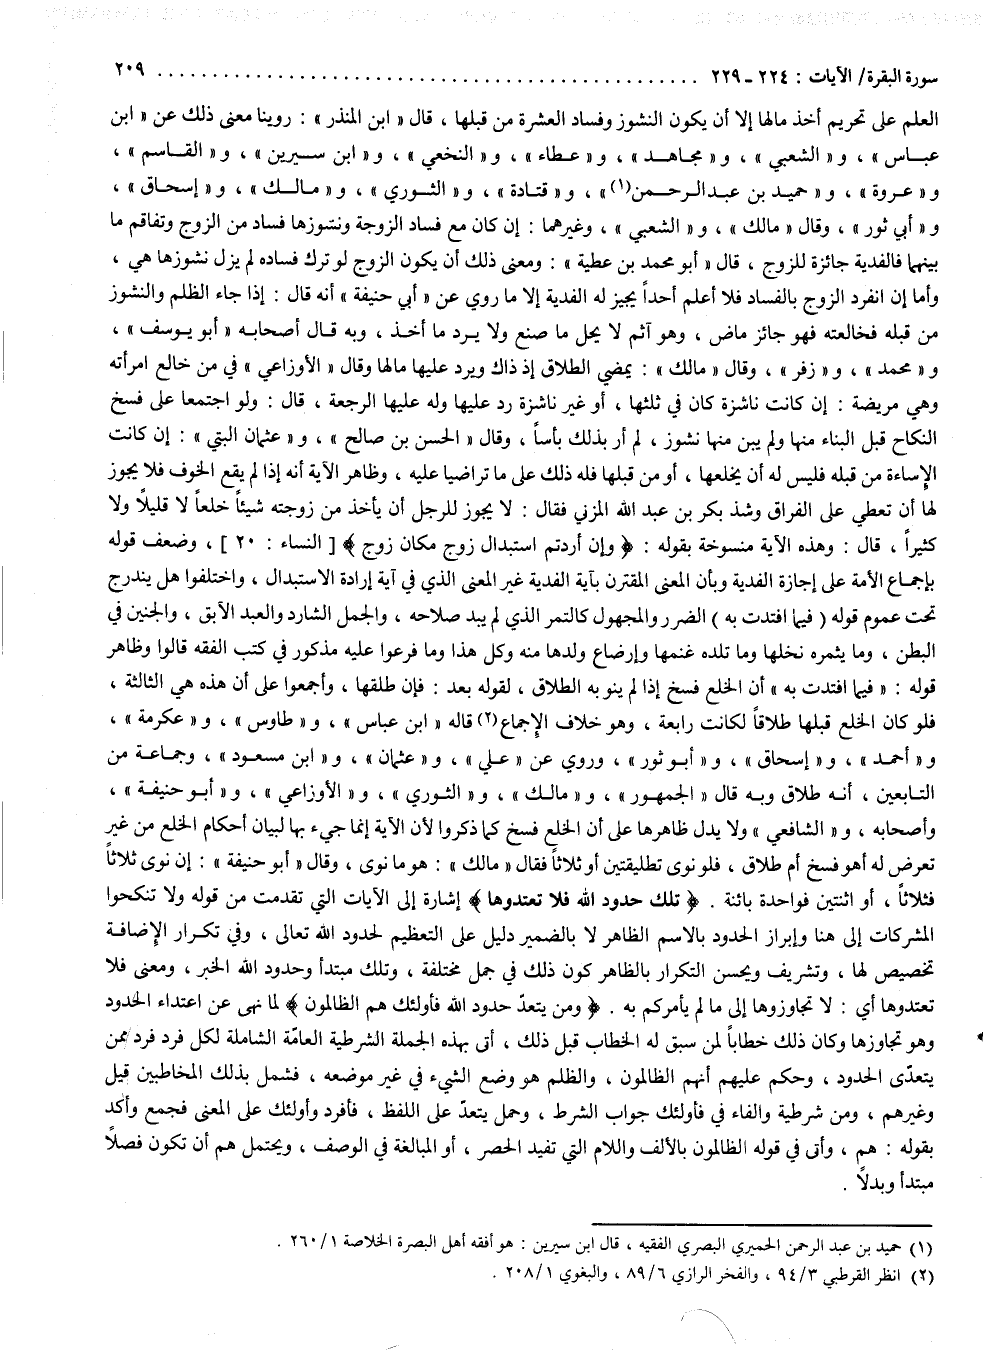 سورة البقرة/ الآيات : ٢٢٤ - ٢٢٩ ........................................ ٢٠٩
العلم على تحريم أخذ مالها إلا أن يكون النشوز وفساد العشرة من قبلها ، قال « ابن المنذر » : روينا معنى ذلك عن « ابن
عباس » ، و« الشعبي » ، و« مجاهد » ، و« عطاء » ، و« النخعي » ، و« ابن سيرين » ، و« القاسم » ،
و« عروة » ، و« حميد بن عبدالرحمن(١)» ، و« قتادة » ، و« الثوري » ، و« مالك » ، و« إسحاق » ،
و« أبي ثور » ، وقال « مالك » ، و« الشعبي » ، وغيرهما : إن كان مع فساد الزوجة ونشوزها فساد من الزوج وتفاقم ما
بينهما فالفدية جائزة للزوج ، قال « أبو محمد بن عطية » : ومعنى ذلك أن يكون الزوج لو ترك فساده لم يزل نشوزها هي ،
وأما إن انفرد الزوج بالفساد فلا أعلم أحداً يجيز له الفدية إلا ما روي عن « أبي حنيفة » أنه قال : إذا جاء الظلم والنشوز
من قبله فخالعته فهو جائز ماض ، وهو آثم لا يحل ما صنع ولا يرد ما أخذ ، وبه قال أصحابه « أبو يوسف » ،
و« محمد » ، و« زفر » ، وقال « مالك » : يمضي الطلاق إذ ذاك ويرد عليها مالها وقال « الأوزاعي » في من خالع امرأته
وهي مريضة : إن كانت ناشزة كان في ثلثها ، أو غير ناشزة رد عليها وله عليها الرجعة ، قال : ولو اجتمعا على فسخ
النكاح قبل البناء منها ولم يبن منها نشوز ، لم أر بذلك بأساً ، وقال « الحسن بن صالح » ، و« عثمان البتي » : إن كانت
الإساءة من قبله فليس له أن يخلعها ، أو من قبلها فله ذلك على ما تراضيا عليه ، وظاهر الآية أنه إذا لم يقع الخوف فلا يجوز
لها أن تعطي على الفراق وشذ بكر بن عبد الله المزني فقال : لا يجوز للرجل أن يأخذ من زوجته شيئاً خلعاً لا قليلاً ولا
كثيراً ، قال : وهذه الآية منسوخة بقوله : ﴿ وإن أردتم استبدال زوج مكان زوج ﴾ [ النساء : ٢٠ ] ، وضعف قوله
بإجماع الأمة على إجازة الفدية وبأن المعنى المقترن بآية الفدية غير المعنى الذي في آية إرادة الاستبدال ، واختلفوا هل يندرج
تحت عموم قوله ( فيما افتدت به ) الضرر والمجهول كالتمر الذي لم يبد صلاحه ، والجمل الشارد والعبد الآبق ، والجنين في
البطن ، وما يثمره نخلها وما تلده غنمها وإرضاع ولدها منه وكل هذا وما فرعوا عليه مذكور في كتب الفقه قالوا وظاهر
قوله : « فيما افتدت به » أن الخلع فسخ إذا لم ينو به الطلاق ، لقوله بعد : فإن طلقها ، وأجمعوا على أن هذه هي الثالثة ،
فلو كان الخلع قبلها طلاقاً لكانت رابعة ، وهو خلاف الإجماع(٢) قاله « ابن عباس » ، و« طاوس » ، و« عكرمة » ،
و« أحمد » ، و« إسحاق » ، و« أبو ثور » ، وروي عن « علي » ، و« عثمان » ، و« ابن مسعود » ، وجماعة من
التابعين ، أنه طلاق وبه قال « الجمهور » ، و« مالك » ، و« الثوري » ، و« الأوزاعي » ، و« أبو حنيفة » ،
وأصحابه ، و« الشافعي » ولا يدل ظاهرها على أن الخلع فسخ كما ذكروا لأن الآية إنما جيء بها لبيان أحكام الخلع من غير
تعرض له أهو فسخ أم طلاق ، فلو نوى تطليقتين أو ثلاثاً فقال « مالك » : هو ما نوى ، وقال « أبو حنيفة » : إن نوى ثلاثاً
فثلاثاً ، أو اثنتين فواحدة بائنة . ﴿ تلك حدود الله فلا تعتدوها ﴾ إشارة إلى الآيات التي تقدمت من قوله ولا تنكحوا
المشركات إلى هنا وإبراز الحدود بالاسم الظاهر لا بالضمير دليل على التعظيم لحدود الله تعالى ، وفي تكرار الإضافة
تخصيص لها ، وتشريف ويحسن التكرار بالظاهر كون ذلك في جمل مختلفة ، وتلك مبتدأ وحدود الله الخبر ، ومعنى فلا
تعتدوها أي : لا تجاوزوها إلى ما لم يأمركم به . ﴿ ومن يتعدّ حدود الله فأولئك هم الظالمون ﴾ لما نهى عن اعتداء الحدود
وهو تجاوزها وكان ذلك خطاباً لمن سبق له الخطاب قبل ذلك ، أتى بهذه الجملة الشرطية العامّة الشاملة لكل فرد فرد ممن
يتعدّى الحدود ، وحكم عليهم أنهم الظالمون ، والظلم هو وضع الشيء في غير موضعه ، فشمل بذلك المخاطبين قيل
وغيرهم ، ومن شرطية والفاء في فأولئك جواب الشرط ، وحمل يتعدّ على اللفظ ، فأفرد وأولئك على المعنى فجمع وأكد
بقوله : هم ، وأتى في قوله الظالمون بالألف واللام التي تفيد الحصر ، أو المبالغة في الوصف ، ويحتمل هم أن تكون فصلاً
مبتدأ وبدلاً .
(١) حميد بن عبد الرحمن الحميري البصري الفقيه ، قال ابن سيرين : هو أفقه أهل البصرة الخلاصة ١/ ٢٦٠ .
(٢) انظر القرطبي ٣/ ٩٤ ، والفخر الرازي ٦/ ٨٩ ، والبغوي ١/ ٢٠٨ .